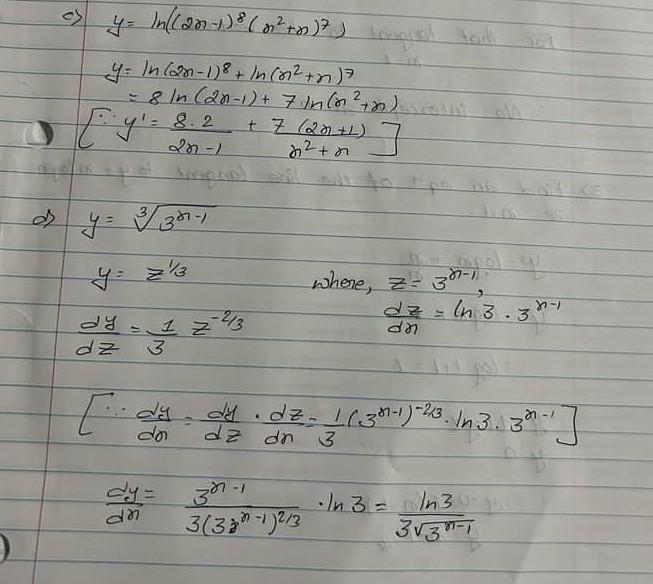 c) y = ln((2x-1)⁸(x²+x)⁷)
y = ln(2x-1)⁸ + ln(x²+x)⁷
= 8 ln(2x-1) + 7 ln(x²+x)
[∵ y' = 8.2/(2x-1) + 7(2x+1)/(x²+x)]
d) y = ∛(3^(x-1))
y = z^(1/3) where, z = 3^(x-1),
dy/dz = 1/3 z^(-2/3) dz/dx = ln 3 · 3^(x-1)
[∵ dy/dx = dy/dz · dz/dx = 1/3 (3^(x-1))^(-2/3) · ln 3 · 3^(x-1)]
dy/dx = 3^(x-1)/(3(3^(x-1))^(2/3)) · ln 3 = ln 3/(3√(3^(x-1)))